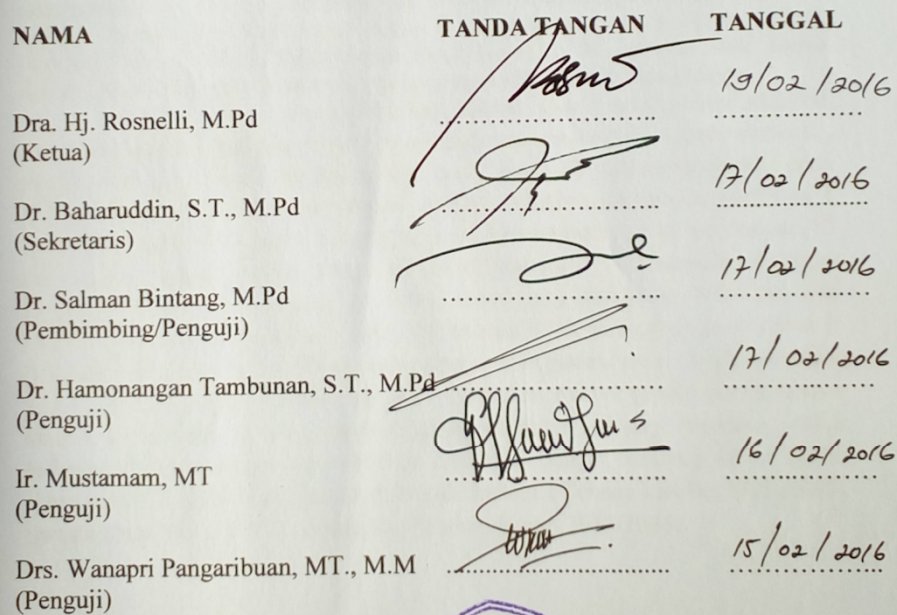 NAMA TANDA TANGAN TANGGAL
19/02/2016
Dra. Hj. Rosnelli, M.Pd
(Ketua)
17/02/2016
Dr. Baharuddin, S.T., M.Pd
(Sekretaris)
17/02/2016
Dr. Salman Bintang, M.Pd
(Pembimbing/Penguji)
17/02/2016
Dr. Hamonangan Tambunan, S.T., M.Pd
(Penguji)
16/02/2016
Ir. Mustamam, MT
(Penguji)
15/02/2016
Drs. Wanapri Pangaribuan, MT., M.M
(Penguji)